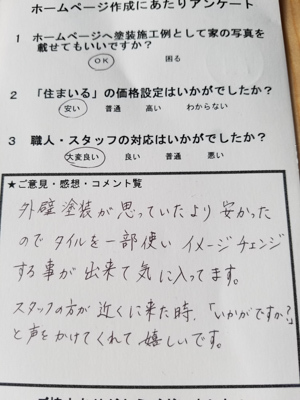 ホームページ作成にあたりアンケート
1 ホームページへ塗装施工例として家の写真を
載せてもいいですか?
OK 困る
2 「住まいる」の価格設定はいかがでしたか?
安い 普通 高い わからない
3 職人・スタッフの対応はいかがでしたか?
大変良い 良い 普通 悪い
★ご意見・感想・コメント覧
外壁塗装が思っていたより安かった
のでタイルを一部使いイメージチェンジ
する事が出来て気に入ってます。
スタッフの方が近くに来た時、「いかがですか?」
と声をかけてくれて嬉しいです。